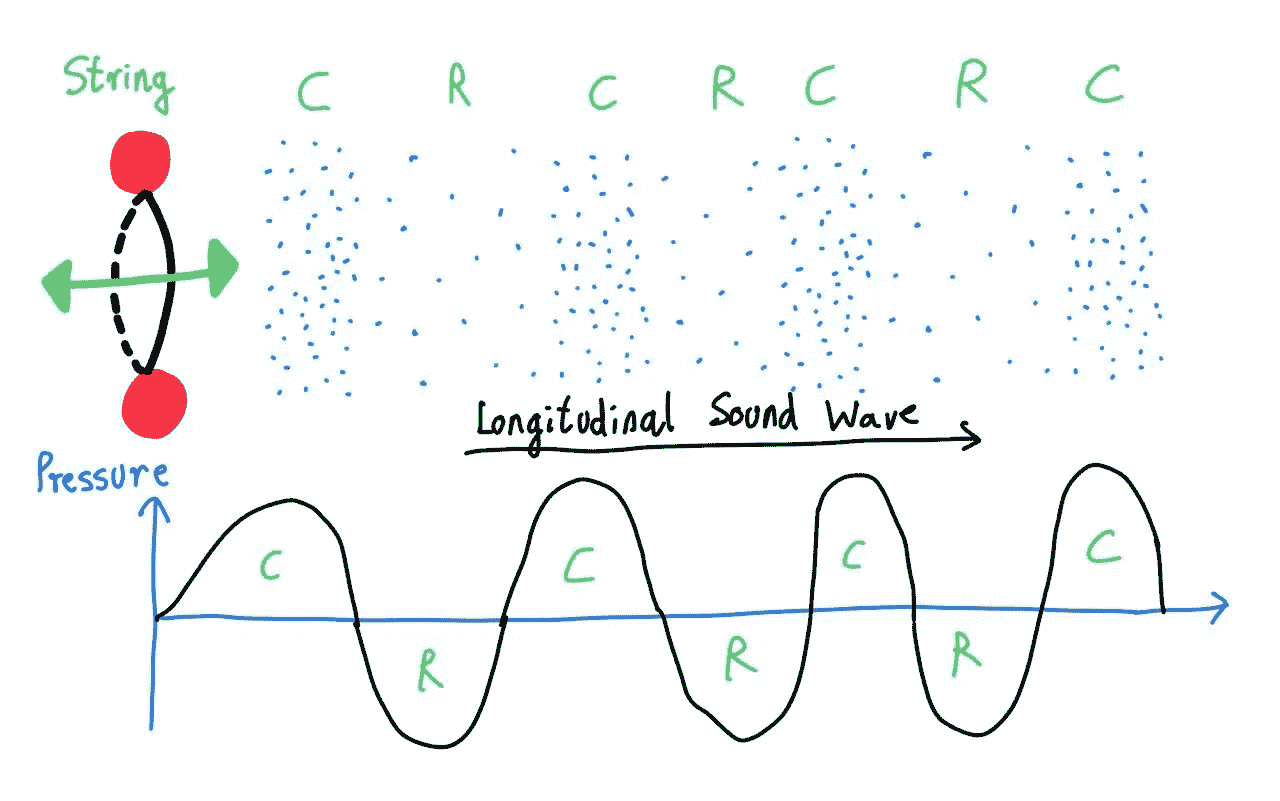 String C R C R C R C
Longitudinal Sound Wave
Pressure
C C C C
R R R